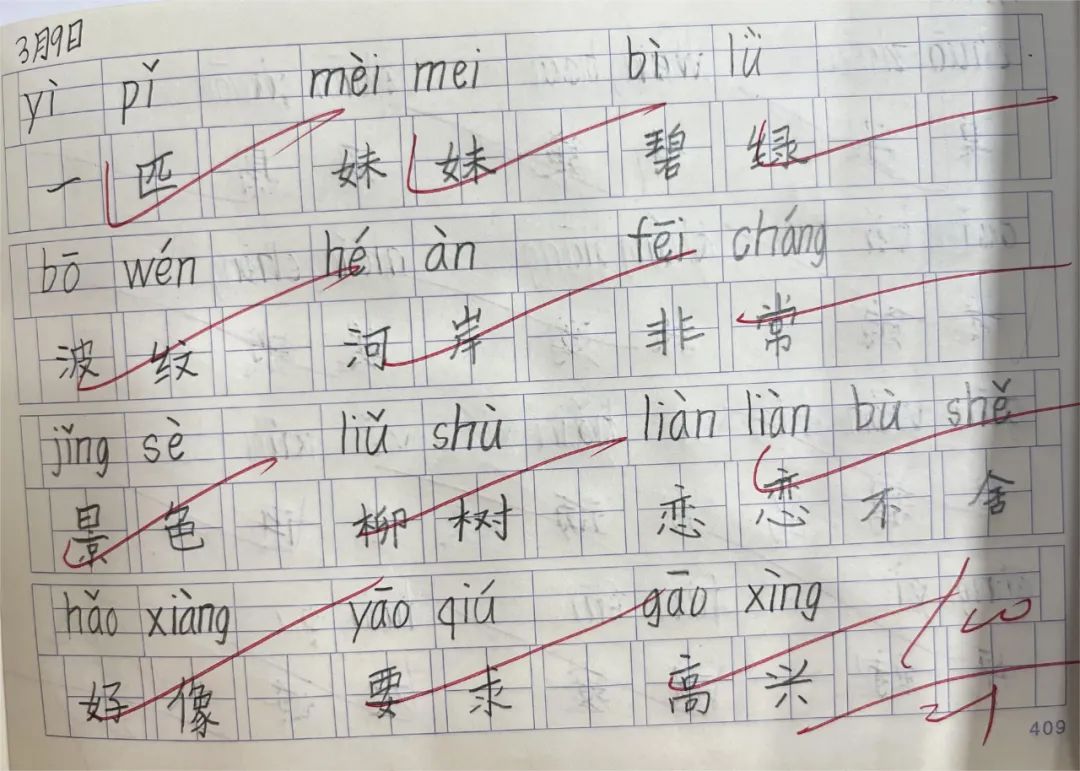 3月9日
yì pǐ mèi mei bì lǜ
一匹 妹妹 碧绿
bō wén hé àn fēi cháng
波纹 河岸 非常
jǐng sè liǔ shù liàn liàn bù shě
景色 柳树 恋恋不舍
hǎo xiàng yāo qiú gāo xìng
好像 要求 高兴
100
409